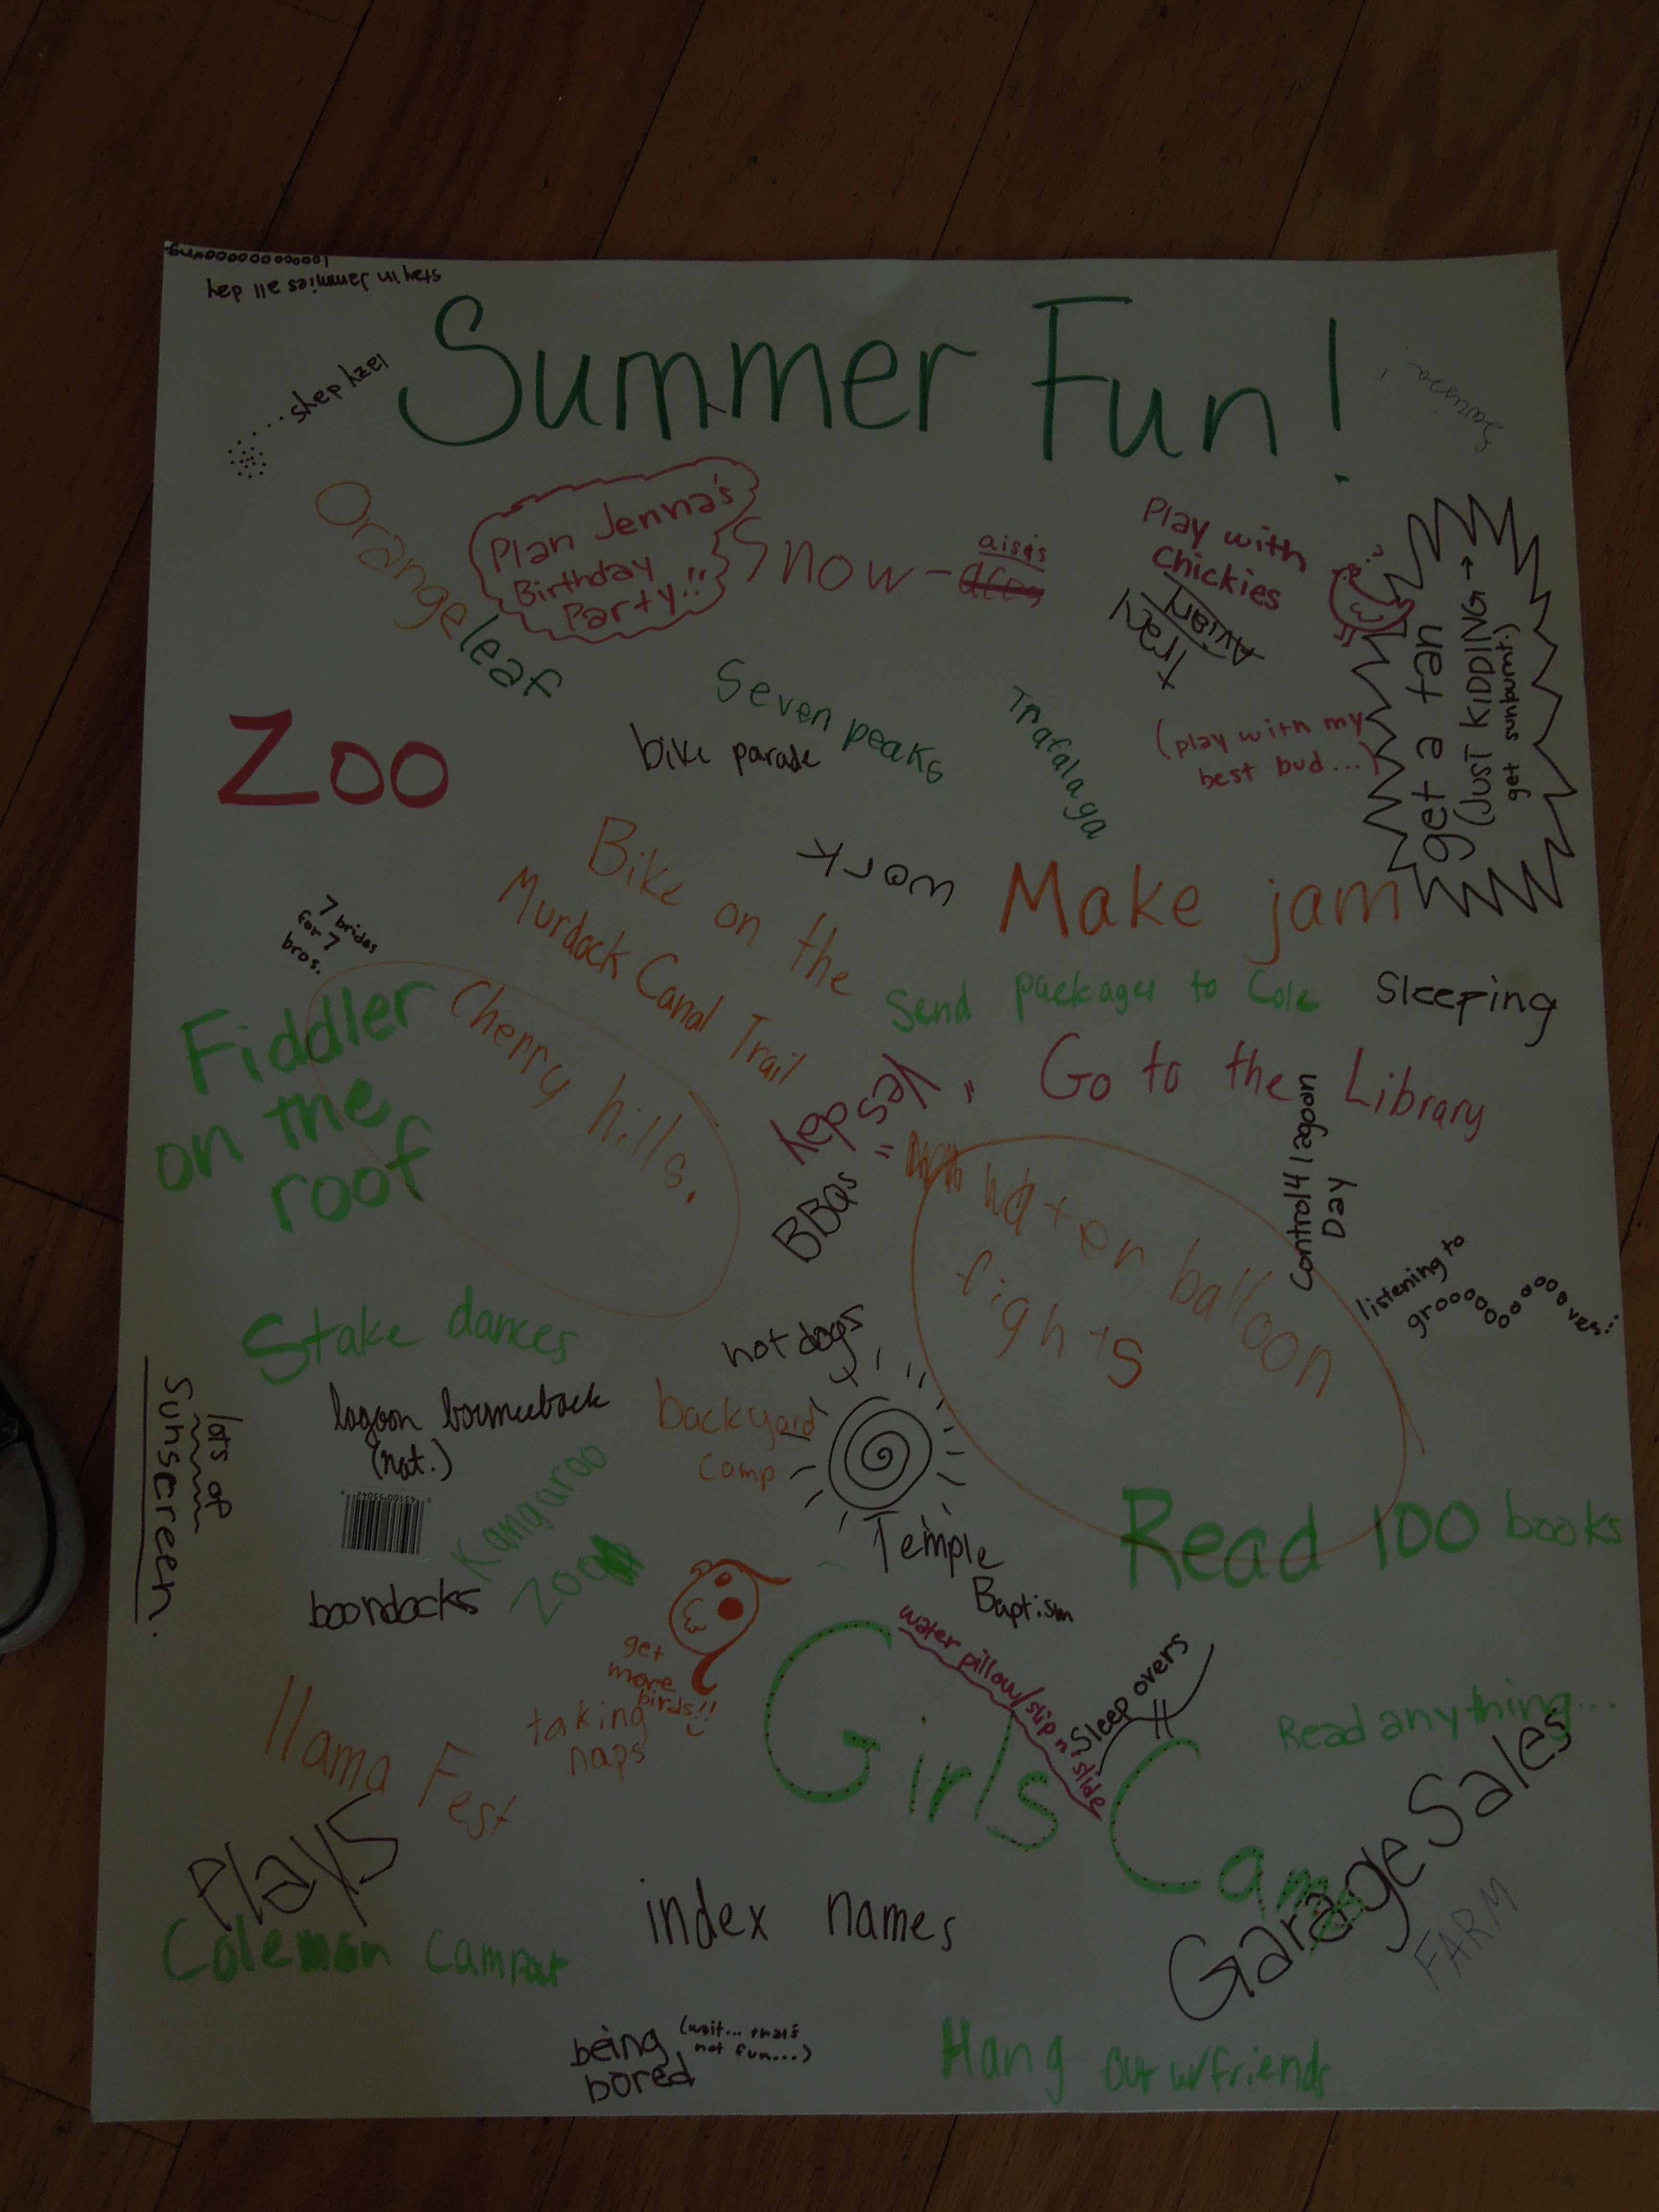 looooooooooooong
stay in jammies all day
Summer Fun!
lazy days
Orange leaf
Plan Jenna's
Birthday
Party!!
Snow-
aisis
Play with
Chickies
Avian
Tray
get a tan
(JUST KIDDING →
get sunburnt.)
Seven peaks
Trafalaga
(play with my
best bud...)
Zoo
bike parade
work
Bike on the
Murdock Canal Trail
Make jam
7 brides
for 7
bros.
Send packages to Cole
Sleeping
Fiddler
on the
roof
Cherry hills.
"Yes day"
Go to the Library
BBQs
water balloon
fights
Control4 lagoon
Day
listening to
groooooooooooves!
Stake dances
hot dogs
lagoon bounceback
(nat.)
backyard
camp
lots of
Sunscreen.
0 43100 55042
Kangaroo
Zoo
Temple
Baptism
Read 100 books
boondocks
get
more
birds!!
water pillow/slip n slide
Sleep overs
Girls Camp
taking
naps
llama Fest
Read anything...
Garage Sales
FARM
Plays
Coleman Campout
index names
being
bored
(wait... that's
not fun...)
Hang out w/friends